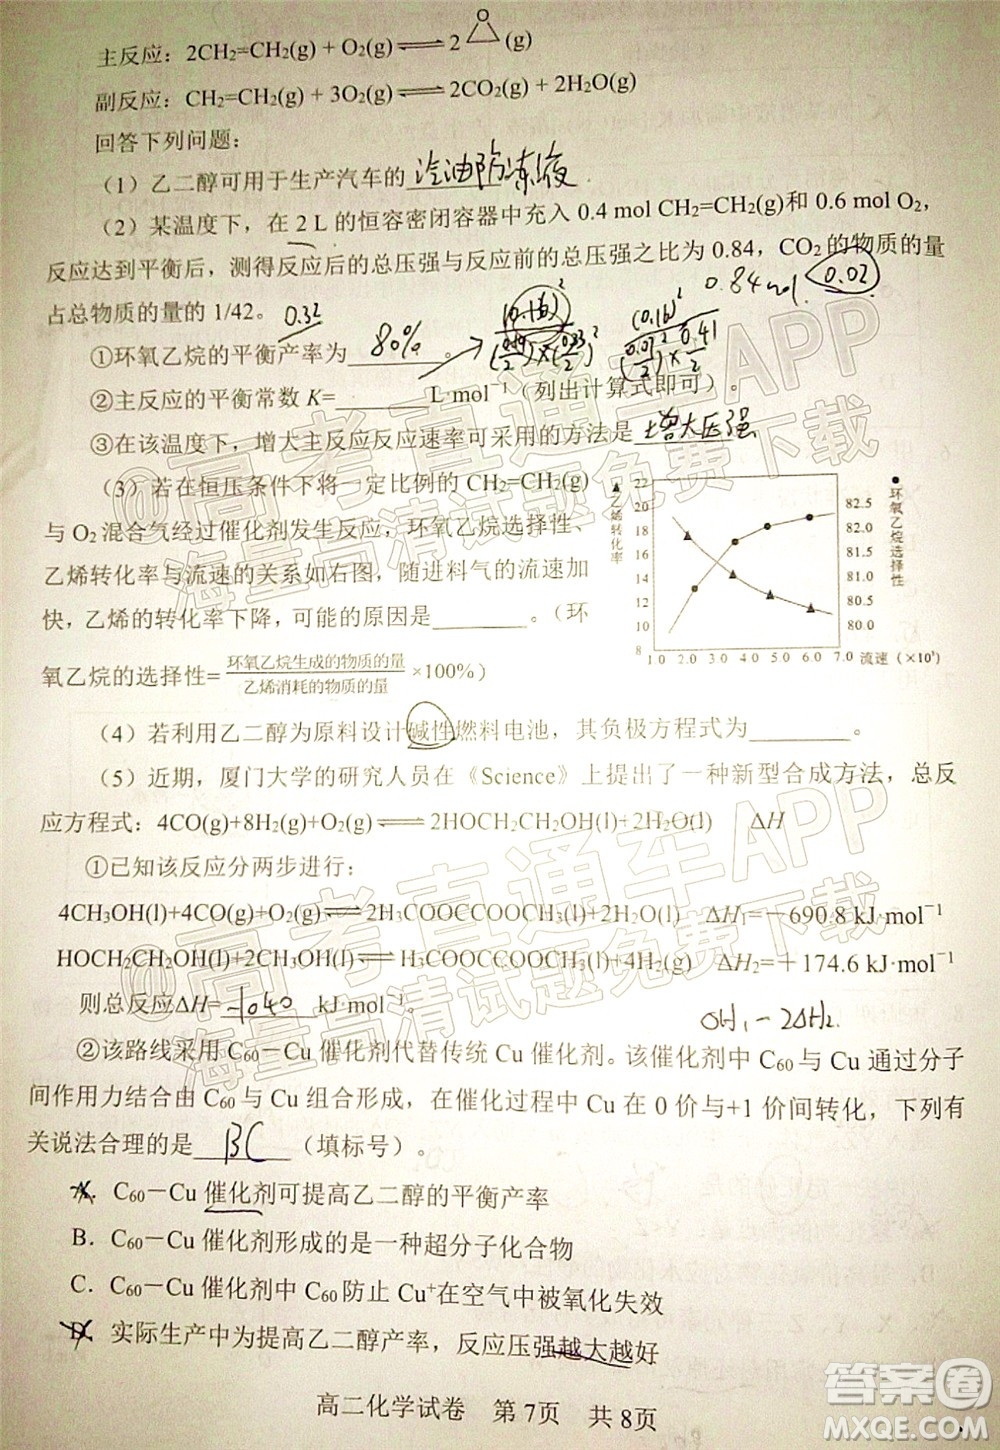 主反应：2CH₂=CH₂(g) + O₂(g) ⇌ 2 O (g)
副反应：CH₂=CH₂(g) + 3O₂(g) ⇌ 2CO₂(g) + 2H₂O(g)
回答下列问题：
（1）乙二醇可用于生产汽车的 汽油防冻液
（2）某温度下，在 2 L 的恒容密闭容器中充入 0.4 mol CH₂=CH₂(g)和 0.6 mol O₂，
反应达到平衡后，测得反应后的总压强与反应前的总压强之比为 0.84，CO₂的物质的量
0.84mol 0.02
占总物质的量的 1/42。 0.32
①环氧乙烷的平衡产率为 80% 。
②主反应的平衡常数 K=______ L·mol⁻¹（列出计算式即可）。
③在该温度下，增大主反应反应速率可采用的方法是 增大压强
（3）若在恒压条件下将一定比例的 CH₂=CH₂(g)
与 O₂混合气经过催化剂发生反应，环氧乙烷选择性、
乙烯转化率与流速的关系如右图，随进料气的流速加
快，乙烯的转化率下降，可能的原因是______。（环
氧乙烷的选择性=环氧乙烷生成的物质的量/乙烯消耗的物质的量×100%）
▲乙烯转化率
22
20
18
16
14
12
10
8
●环氧乙烷选择性
82.5
82.0
81.5
81.0
80.5
80.0
1.0 2.0 3.0 4.0 5.0 6.0 7.0 流速（×10³）
（4）若利用乙二醇为原料设计碱性燃料电池，其负极方程式为______。
（5）近期，厦门大学的研究人员在《Science》上提出了一种新型合成方法，总反
应方程式：4CO(g)+8H₂(g)+O₂(g) ⇌ 2HOCH₂CH₂OH(l)+2H₂O(l) ΔH
①已知该反应分两步进行：
4CH₃OH(l)+4CO(g)+O₂(g) ⇌ 2H₃COOCCOOCH₃(l)+2H₂O(l) ΔH₁=－690.8 kJ·mol⁻¹
HOCH₂CH₂OH(l)+2CH₃OH(l) ⇌ H₃COOCCOOCH₃(l)+4H₂(g) ΔH₂=＋174.6 kJ·mol⁻¹
则总反应ΔH= -1040 kJ·mol⁻¹。
ΔH₁-2ΔH₂
②该路线采用 C₆₀－Cu 催化剂代替传统 Cu 催化剂。该催化剂中 C₆₀与 Cu 通过分子
间作用力结合由 C₆₀与 Cu 组合形成，在催化过程中 Cu 在 0 价与+1 价间转化，下列有
关说法合理的是 BC （填标号）。
A．C₆₀－Cu 催化剂可提高乙二醇的平衡产率
B．C₆₀－Cu 催化剂形成的是一种超分子化合物
C．C₆₀－Cu 催化剂中 C₆₀防止 Cu⁺在空气中被氧化失效
D．实际生产中为提高乙二醇产率，反应压强越大越好
高二化学试卷 第 7页 共 8页
@高考直通车APP
海量高清试题免费下载
@高考直通车APP
海量高清试题免费下载
答案圈
MXQE.COM